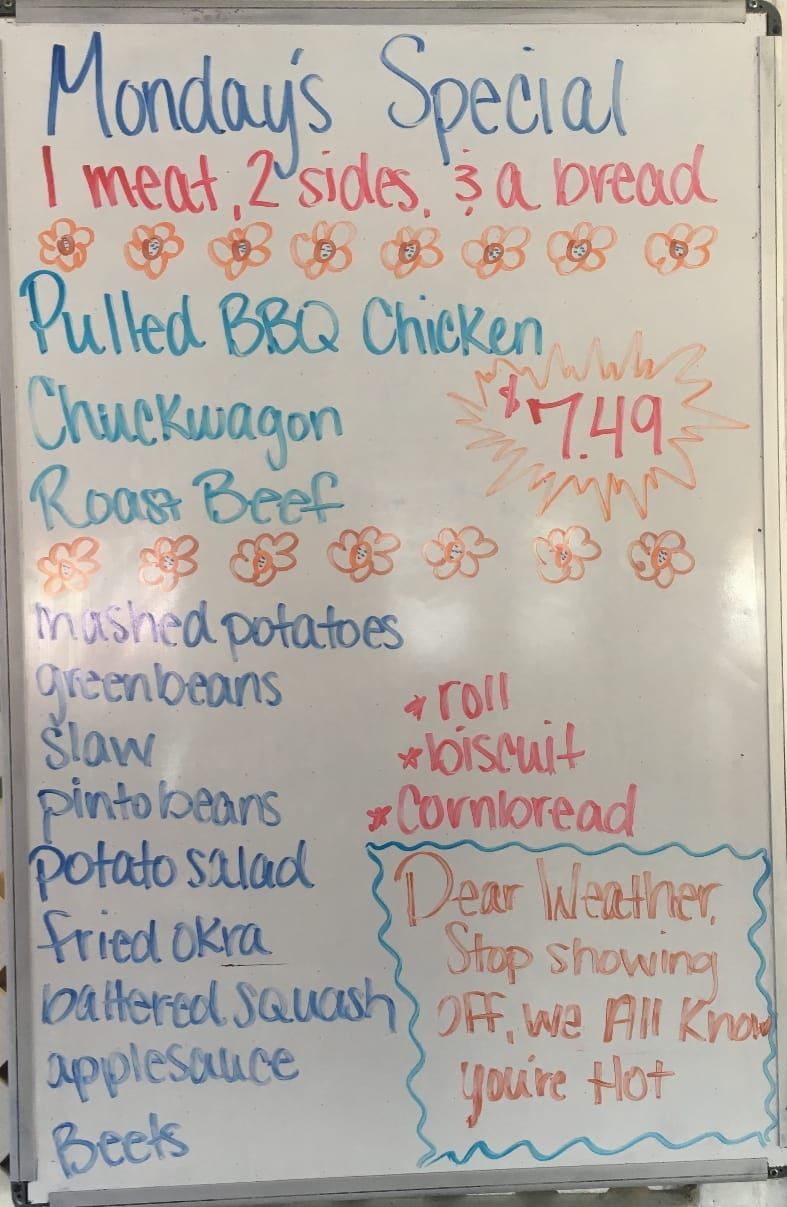 Monday's Special
1 meat, 2 sides, & a bread
Pulled BBQ Chicken
Chuckwagon
$7.49
Roast Beef
mashed potatoes
greenbeans
slaw
pinto beans
potato salad
fried okra
battered squash
applesauce
Beets
* roll
* biscuit
* Cornbread
Dear Weather,
Stop showing
Off, we All Know
you're Hot